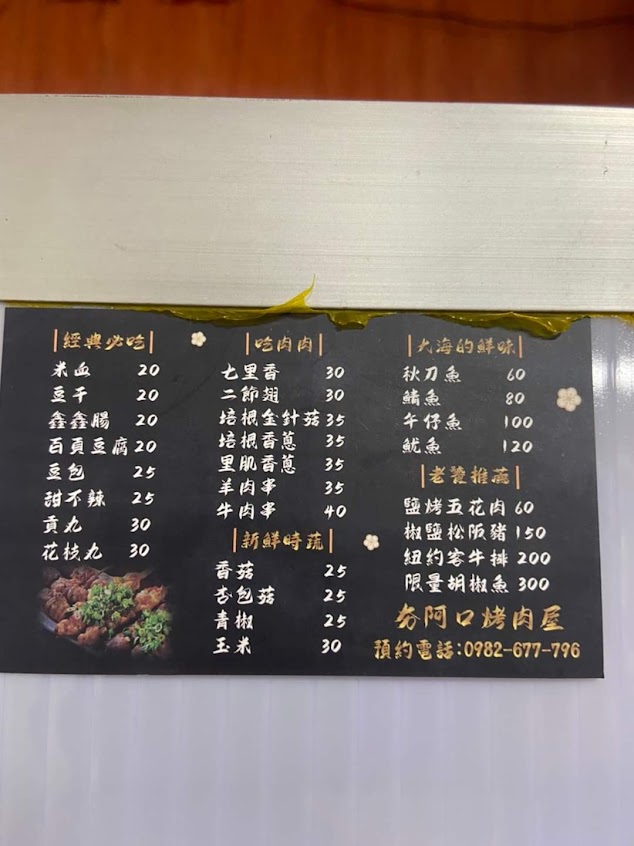 經典必吃
米血 20
豆干 20
鑫鑫腸 20
百頁豆腐 20
豆包 25
甜不辣 25
貢丸 30
花枝丸 30
吃肉肉
七里香 30
二節翅 30
培根金針菇 35
培根香蔥 35
里肌香蔥 35
羊肉串 35
牛肉串 40
新鮮時蔬
香菇 25
杏包菇 25
青椒 25
玉米 30
大海的鮮味
秋刀魚 60
鯖魚 80
午仔魚 100
魷魚 120
老饕推薦
鹽烤五花肉 60
椒鹽松阪豬 150
紐約客牛排 200
限量胡椒魚 300
夯阿口烤肉屋
預約電話:0982-677-796